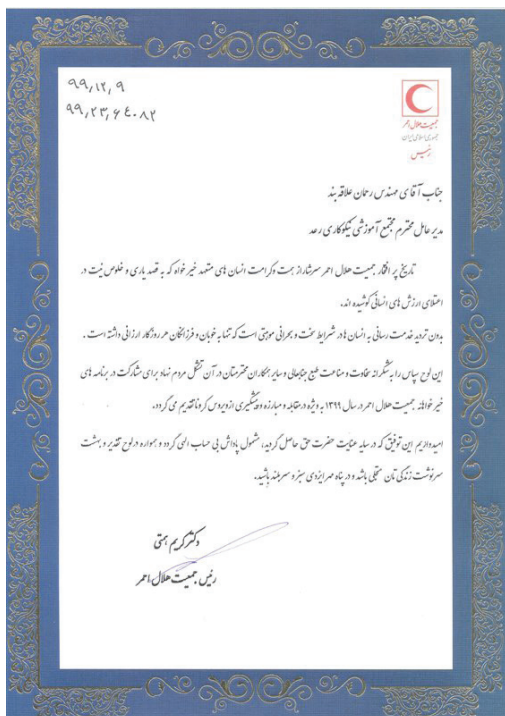 ۹۹,۱۲,۹
۹۹,۲۳,۶۴۰۸۲
جمعیت هلال احمر
جمهوری اسلامی ایران
رئیس
جناب آقای مهندس رحمان علاقه بند
مدیر عامل محترم مجتمع آموزشی نیکوکاری رعد
تاریخ پر افتخار جمعیت هلال احمر سرشار از همت و کرامت انسان های متعهد خیرخواه که به قصد یاری و خلوص نیت در
اعتلای ارزش های انسانی کوشیده اند.
بدون تردید خدمت رسانی به انسان ها در شرایط سخت و بحرانی موهبتی است که تنها به خوبان و فرزانگان هر روزگار ارزانی داشته است.
این لوح سپاس را به شکرانه سخاوت و مناعت طبع جنابعالی و سایر همکاران محترمتان در آن تشکل مردم نهاد برای مشارکت در برنامه های
خیرخواهانه جمعیت هلال احمر در سال ۱۳۹۹ به ویژه در مقابله و مبارزه و پیشگیری از ویروس کرونا تقدیم می گردد.
امیدواریم این توفیق که در سایه عنایت حضرت حق حاصل گردید، مشمول پاداش بی حساب الهی گردد و همواره در لوح تقدیر و بهشت
سرنوشت زندگی تان متجلی باشد و در پناه مهر ایزدی سبز و سربلند باشید.
دکتر کریم همتی
رئیس جمعیت هلال احمر